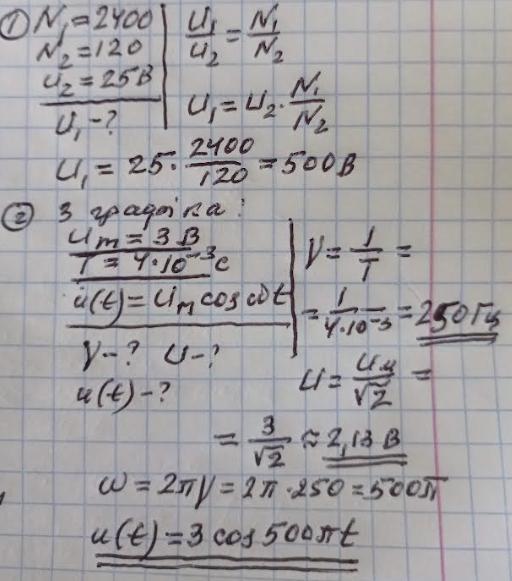 ① N₁ = 2400
N₂ = 120
U₂ = 25 В
U₁ - ?
U₁/U₂ = N₁/N₂
U₁ = U₂ · N₁/N₂
U₁ = 25 · 2400/120 = 500 В
② З графіка:
Um = 3 В
T = 4·10⁻³ с
u(t) = Um cos ωt
V - ? U - ?
u(t) - ?
V = 1/T =
= 1/4·10⁻³ = 250 Гц
U = Uм/√2 =
= 3/√2 ≈ 2,13 В
ω = 2πV = 2π · 250 = 500π
u(t) = 3 cos 500πt